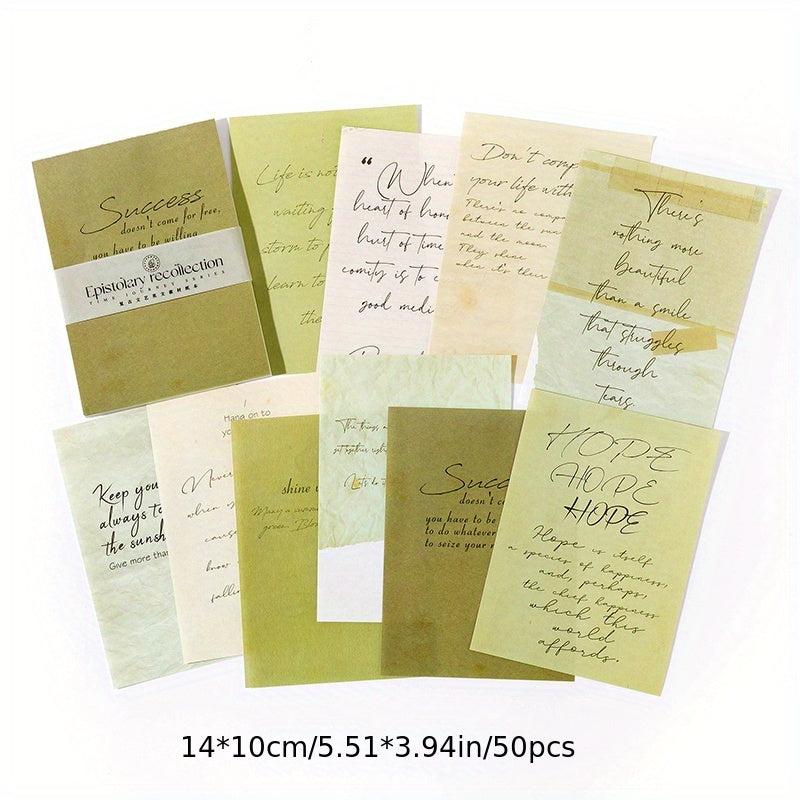 Success
doesn't come for free,
you have to be willing
Epistolary recollection
TIME JOURNEY SERIES
Life is not
waiting
storm to
learn to
the
“
When
heart of
hurt of time
comity is to
good medi
Don't comp
your life with
There's no compa
between the sun
and the moon
They shine
when it's their
There's
nothing more
beautiful
than a smile
that struggles
through
tears.
Keep you
always to
the sunsh
Give more than
Hang on to
yo
Never
when y
cause
know
fallin
shine
Many a
green.
The things
Let's do
Succ
doesn't co
you have to be
to do whatever
to seize your
HOPE
HOPE
HOPE
Hope is itself
a species of happiness,
and, perhaps,
the chief happiness
which this
world
affords.
14*10cm/5.51*3.94in/50pcs